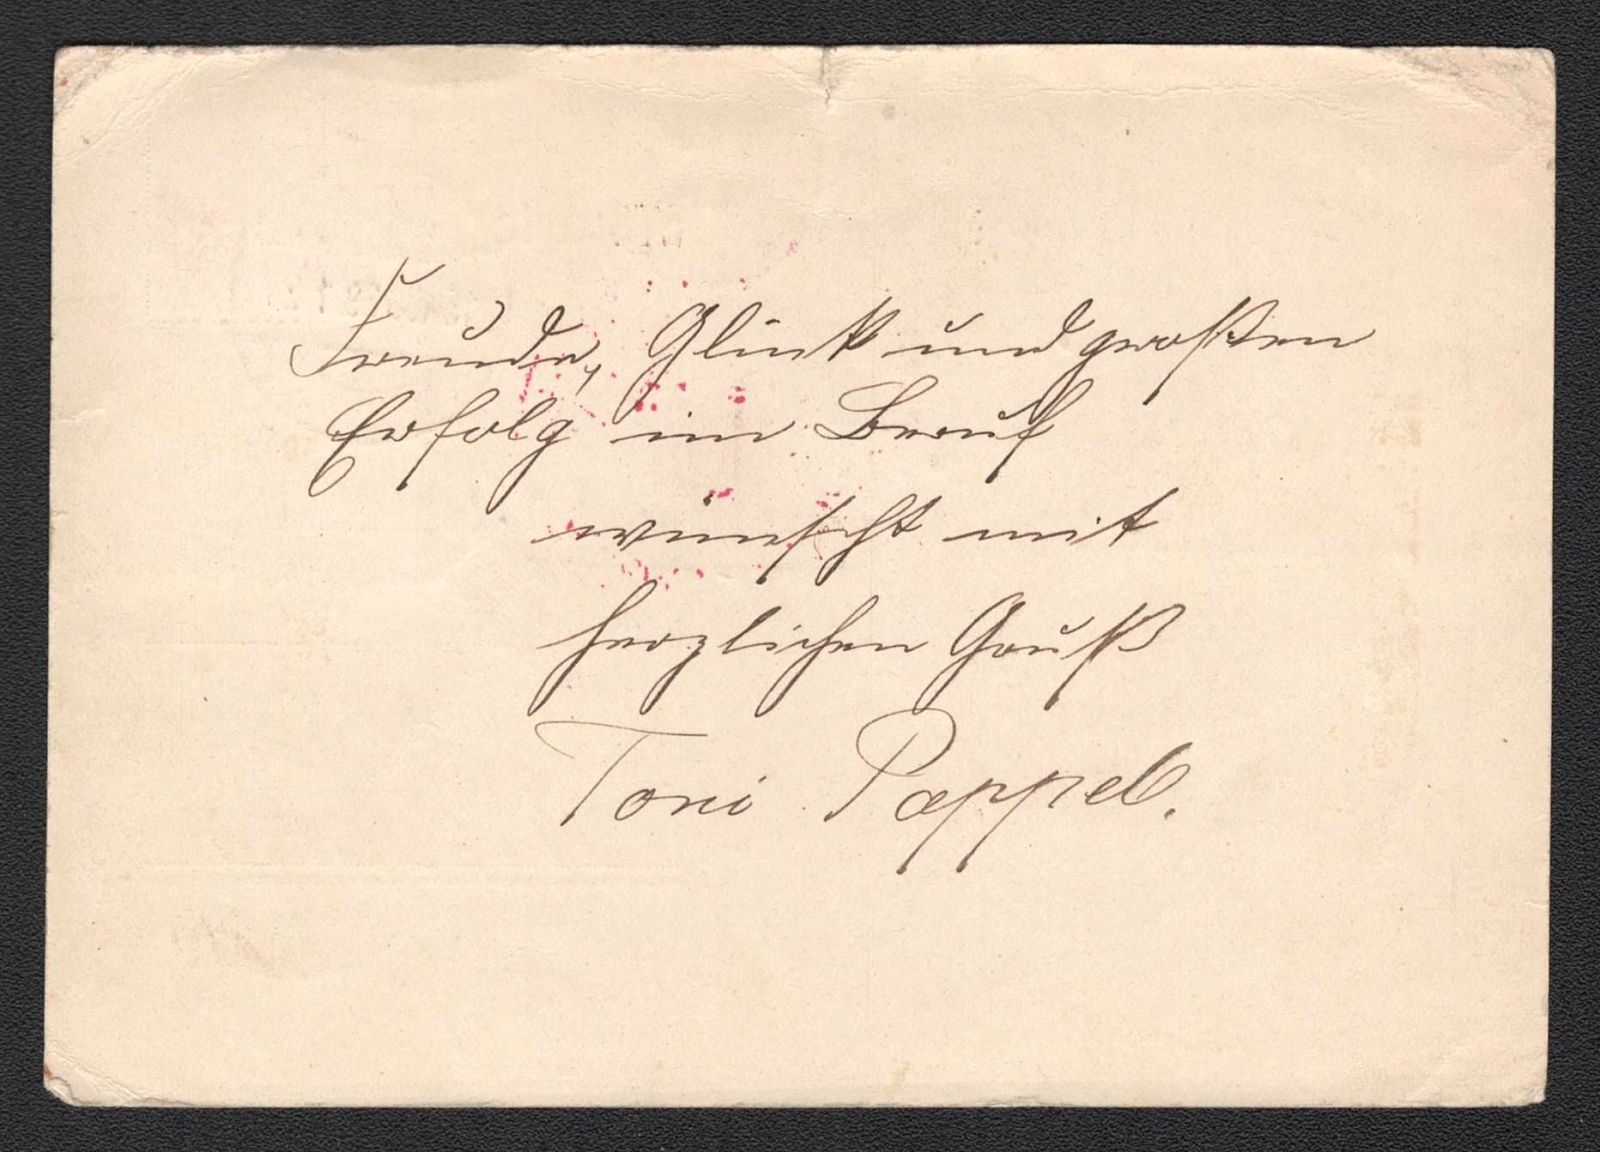 Freude, Glück und großen
Erfolg im Beruf
wünscht mit
herzlichen Gruß
Toni Pappel.